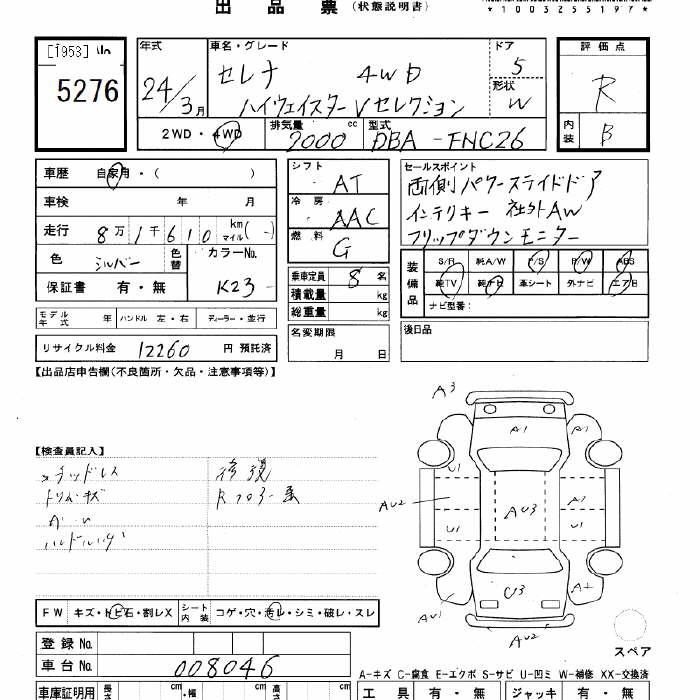 出品票(状態説明書)
*1003255197*
[1953]
5276
年式
24/3月
車名・グレード
セレナ 4WD
ハイウェイスターVセレクション
ドア
5
形状
W
評価点
R
内装
B
2WD・4WD
排気量 2000 cc
型式 DBA-FNC26
車歴 自家用・( )
車検 年 月
走行 8万1千610 km マイル(-)
色 シルバー 色替
カラーNo. K23
保証書 有・無
モデル年式 年 ハンドル 左・右 ディーラー・並行
リサイクル料金 12260 円 預託済
シフト AT
冷房 AAC
燃料 G
乗車定員 8 名
積載量 kg
総重量 kg
名変期限
月 日
セールスポイント
両側パワースライドドア
インテリキー 社外AW
フリップダウンモニター
装備品
S/R 純A/W P/S P/W ABS
純TV 純ナビ 革シート 外ナビ エアB
ナビ型番:
後日品
【出品店申告欄(不良箇所・欠品・注意事項等)】
【検査員記入】
トリム・キズ
A・U
A3
A1
A1 A1
U1
AU2
U1
AU3
A1
U3
AU1
AU2
スペア
FW キズ・トビ石・割レX
シート内装 コゲ・穴・汚レ・シミ・破レ・スレ
登録No.
車台No. 008046
A-キズ C-腐食 E-エクボ S-サビ U-凹ミ W-補修 XX-交換済
車庫証明用 長さ cm ・幅 cm cm
工具 有・無 ジャッキ 有・無